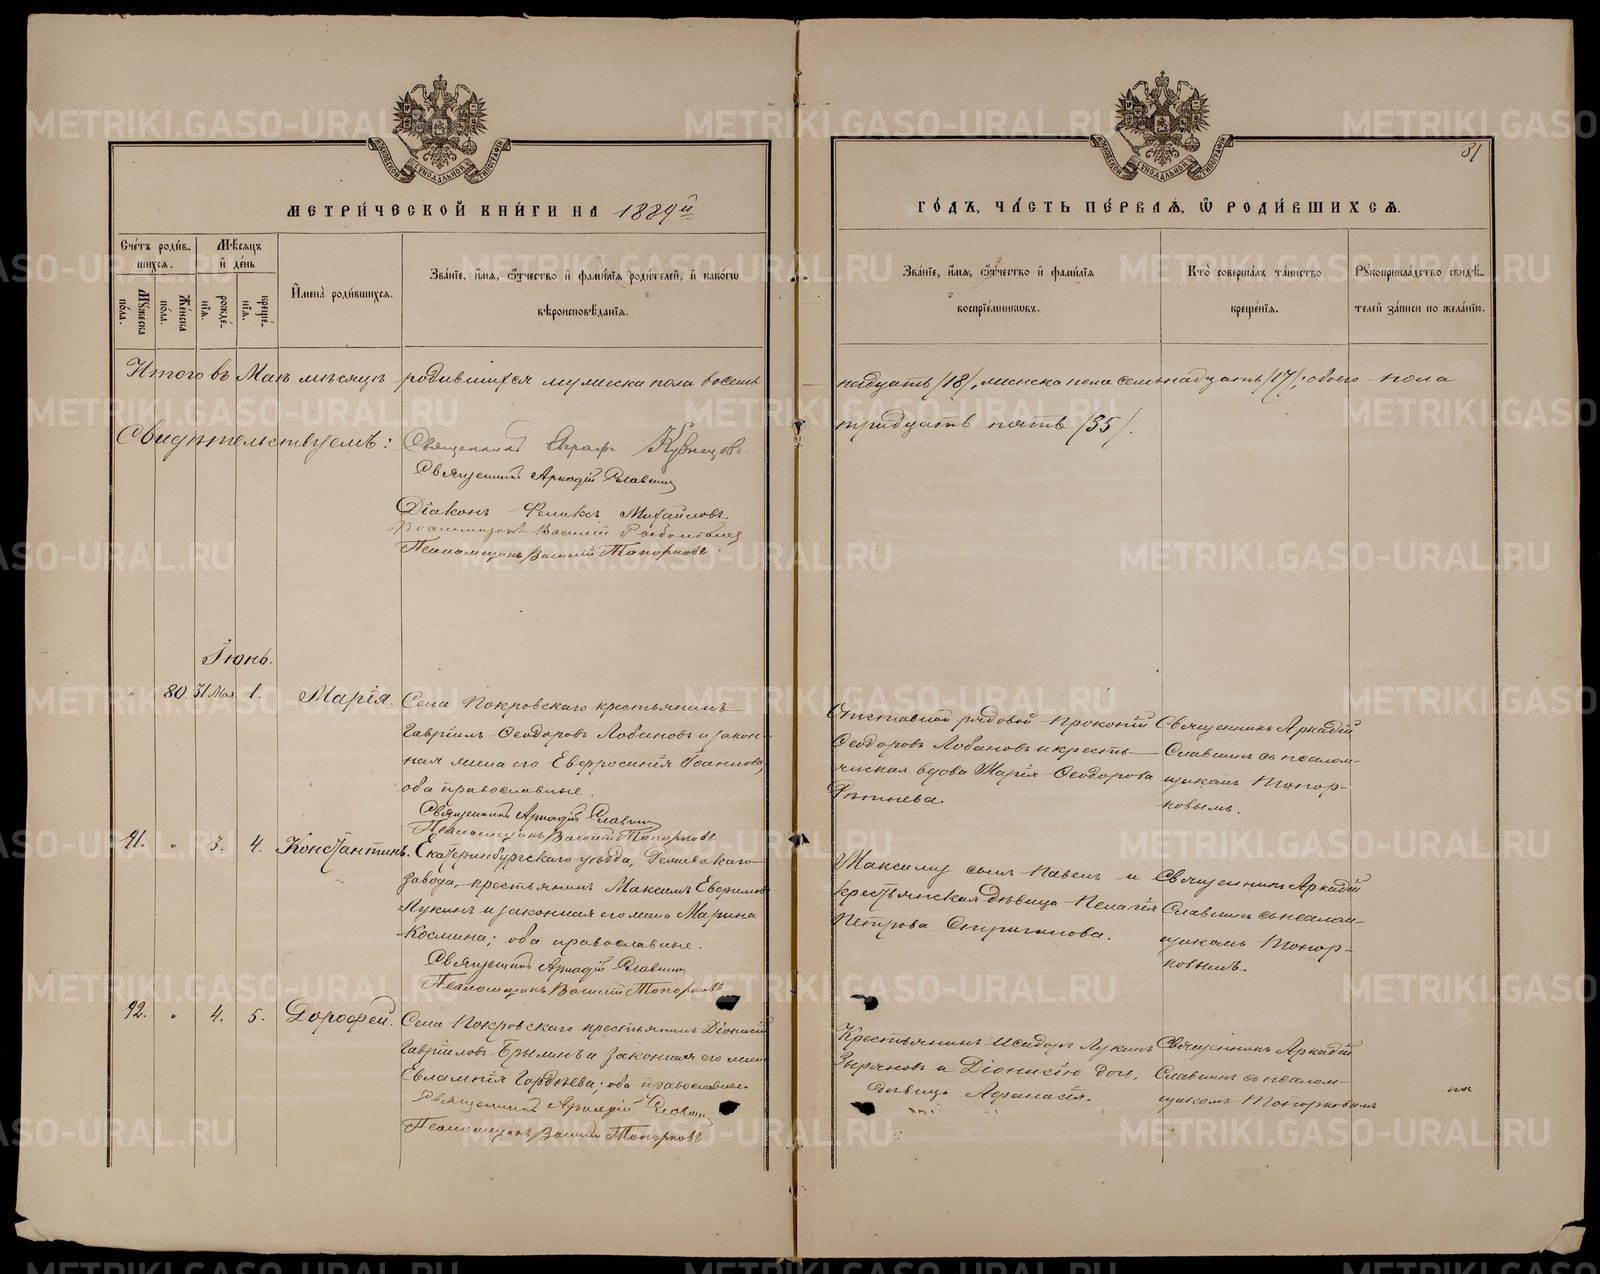 МЕТРИ́ЧЕСКОЙ КНИ́ГИ НА 1889й
Сче́тъ роди́в-
шихся.
Мѣ́сяцъ
и҆ де́нь
Мꙋ́жеска
по́ла.
Же́нска
по́ла.
рожде́-
нїѧ.
креще́-
нїѧ.
И҆мена̀ роди́вшихсѧ.
Зва́нїе, и҆́мѧ, ѻ҆́тчество и҆ фами́лїѧ роди́телей, и҆ како́гѡ
вѣроисповѣ́данїѧ.
Итого въ Маѣ мѣсяцѣ родившихся мужеска пола восемь
Свидѣтельствуемъ:
Священникъ Кузнецовъ
Священникъ Аркадій Славнинъ
Діаконъ Феликсъ Михайловъ
Псаломщикъ Василій
Псаломщикъ Василій Топорковъ.
Іюнь.
" 80. 31 Мая. 1. Марія.
Села Покровскаго крестьянинъ
Гавріилъ Ѳеодоровъ Лобановъ и закон-
ная жена его Евфросинія Іоаннова,
оба православные.
Священникъ Аркадій Славнинъ
Псаломщикъ Василій Топорковъ
91. " 3. 4. Константинъ.
Екатеринбургскаго уѣзда, Режевскаго
завода, крестьянинъ Максимъ Евфимовъ
Лукинъ и законная его жена Марина
Космина; оба православные.
Священникъ Аркадій Славнинъ
Псаломщикъ Василій Топорковъ
92. " 4. 5. Дорофей.
Села Покровскаго крестьянинъ Діонисій
Гавріиловъ и законная его жена
Евлампія Гордѣева; оба православные
Священникъ Аркадій Славнинъ
Псаломщикъ Василій Топорковъ
31
ГО́ДЪ, ЧА́СТЬ ПЕ́РВАѦ, Ѡ҆ РОДИ́ВШИХСѦ.
Зва́нїе, и҆́мѧ, ѻ҆́тчество и҆ фами́лїѧ
воспрїе́мникѡвъ.
Кто̀ соверша́лъ та́инство
креще́нїѧ.
Рꙋкоприкла́дство свидѣ́-
телей за́писи по жела́нїю.
надцать /18/, женска пола семьнадцать /17/; обоего пола
тридцать пять /35/.
Отставной рядовой Прокопій
Ѳеодоровъ Лобановъ и кресть-
янская вдова Марія Ѳеодорова
Священникъ Аркадій
Славнинъ съ псалом-
щикомъ Топор-
ковымъ.
Максиму сынъ Павелъ и
крестьянская дѣвица Пелагія
Петрова Стриганова.
Священникъ Аркадій
Славнинъ съ псалом-
щикомъ Топор-
ковымъ.
Крестьянинъ Исидоръ Лукинъ
Зыряновъ и Діонисію дочь,
дѣвица Аѳанасія.
Священникъ Аркадій
Славнинъ съ псалом-
щикомъ Топорковымъ
METRIKI.GASO-URAL.RU